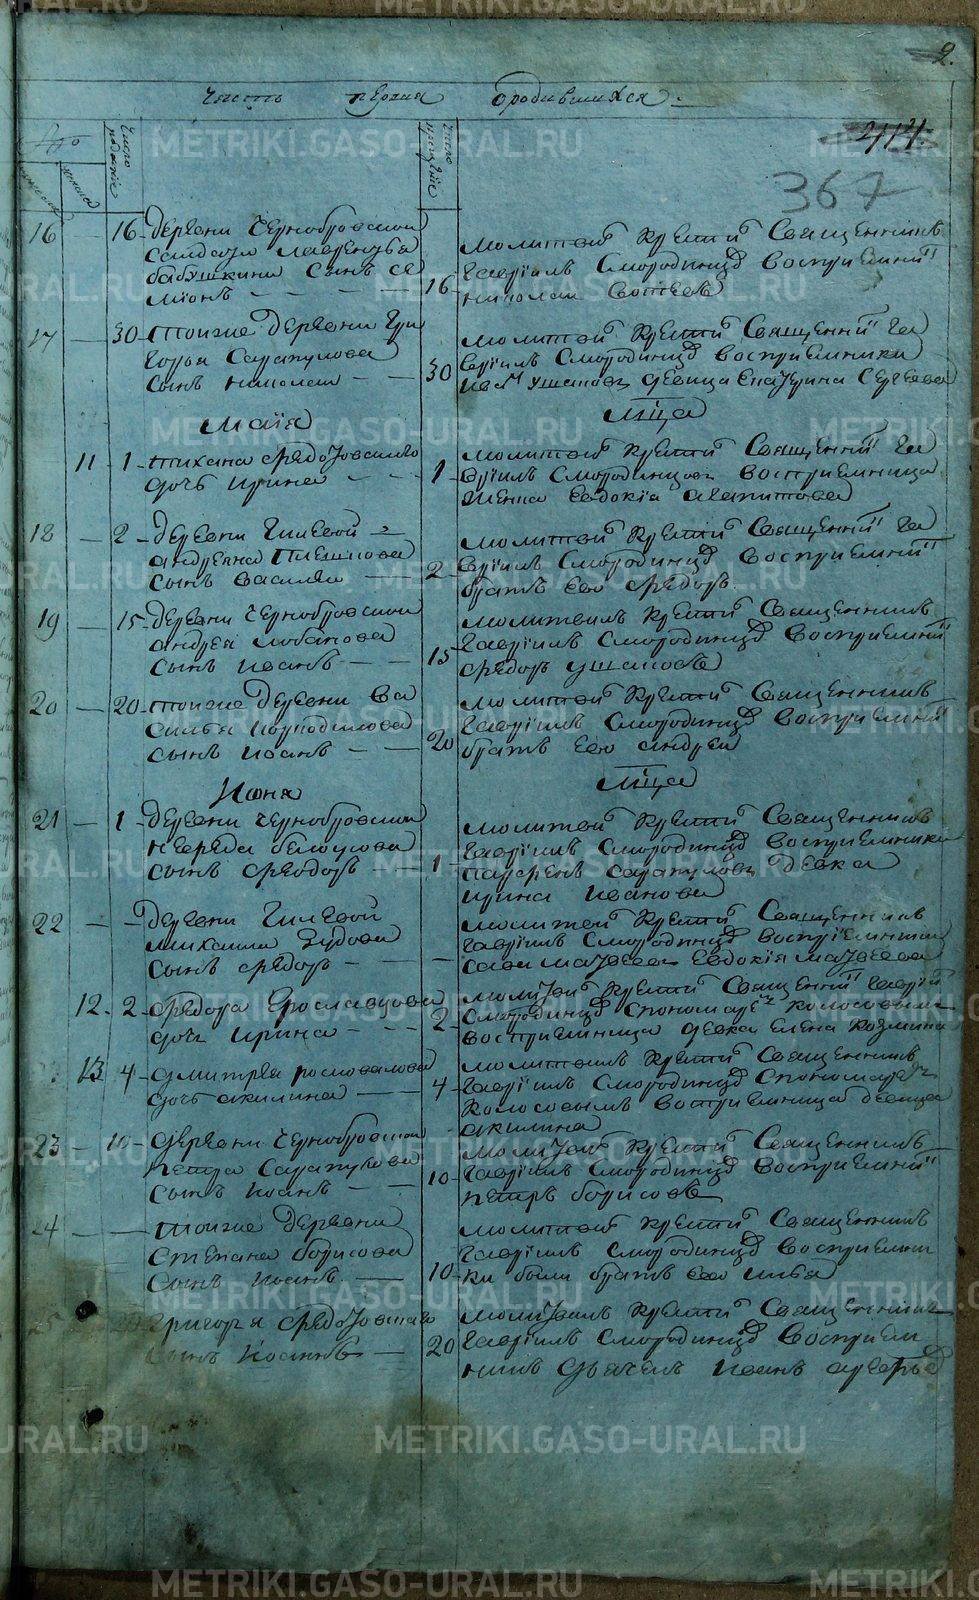 2.
Часть первая о родившихся.
2114.
367
Число рождения
Число крещения
16 — 16 Деревни Чернобровской
Лаврентья
Бабушкина сынъ Се
мiонъ
Молитвой Крести Священникъ
Гаврiилъ Смородинцо Воспрiемни
16 Николай
17 — 30 Тоиже Деревни Гри
горья Сарапулова
сынъ Николай
Молитвой Крести Священни Га
30 врiилъ Смородинцо Воспрiемники
Ушаковъ девица Екатерина Сергеева
Маiя
Мца
11 1 Тихана Федотовскаго
дочь Ирина
Молитвой Крести Священни Га
1 врiилъ Смородинцовъ Воспрiемница
Женка Евдокiа Агапитова
18 — 2 Деревни Гилевой
Андреяна Плешкова
сынъ Василей
Молитвой Крести Священни Га
2 врiилъ Смородинцо Воспрiемни
братъ Ево Федоръ
19 — 15 Деревни Чернобровской
Андрея Лобанова
сынъ Иоанъ
Молитвилъ Крести Священникъ
15 Гаврiилъ Смородинцо Воспрiемни
Федоръ Ушаковъ
20 — 20 Тоиже Деревни Ва
силья
сынъ Иоанъ
Молитвой Крести Священникъ
Гаврiилъ Смородинцо Воспрiемни
20 братъ Ево Андрей
Июня
Мца
21 — 1 Деревни Чернобровской
Белоусова
сынъ Феодоръ
Молитвой Крести Священникъ
Гаврiилъ Смородинцо Воспрiемники
1 Парфенъ Сарапуловъ девка
Ирина Иванова
22 — — Деревни Гилевой
Михаила Зудова
сынъ Федоръ
Молитвой Крести Священникъ
Гаврiилъ Смородинцо Воспрiемники
— Сава Матвеевъ Евдокiя Матвеева
12 2 Федора Ерославцова
дочь Ирина
Молитвой Крести Священни Гаврiи
2 Смородинцо Спономаре Колосовымъ
воспрiемница девка Елена Козмина
13 4 Дмитрея
дочь Акилина
Молитвилъ Крести Священникъ
4 Гаврiилъ Смородинцо Спономаре
Колосовымъ воспрiемница девица
Акилина
23 — 10 Деревни Чернобровской
Петра Сарапулова
сынъ Иоанъ
Молитвой Крести Священникъ
10 Гаврiилъ Смородинцо Воспрiемни
Петръ Борисовъ
24 — — Тоиже Деревни
Степана Борисова
сынъ Иоанъ
Молитвой Крести Священникъ
Гаврiилъ Смородинцо Воспрiемни
10 ки были братъ ево Илья
25 20 Григорья Федотовскаго
сынъ Иоанъ
Молитвилъ Крести Священникъ
20 Гаврiилъ Смородинцо Воспрiем
никъ Дьячекъ Иванъ
METRIKI.GASO-URAL.RU